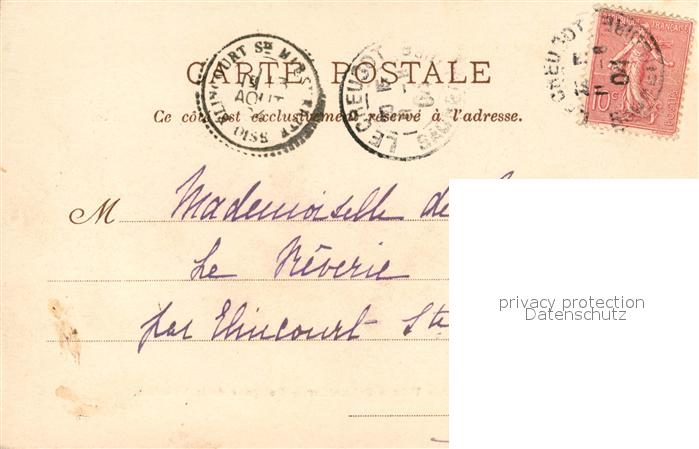 CARTE POSTALE
Ce côté est exclusivement réservé à l'adresse.
ELINCOURT STE MARGUERITE
AOUT
OISE
LE CREUSOT
LE CREUSOT
04
10
M Mademoiselle de
Le Rêverie
par Elincourt Ste
privacy protection
Datenschutz